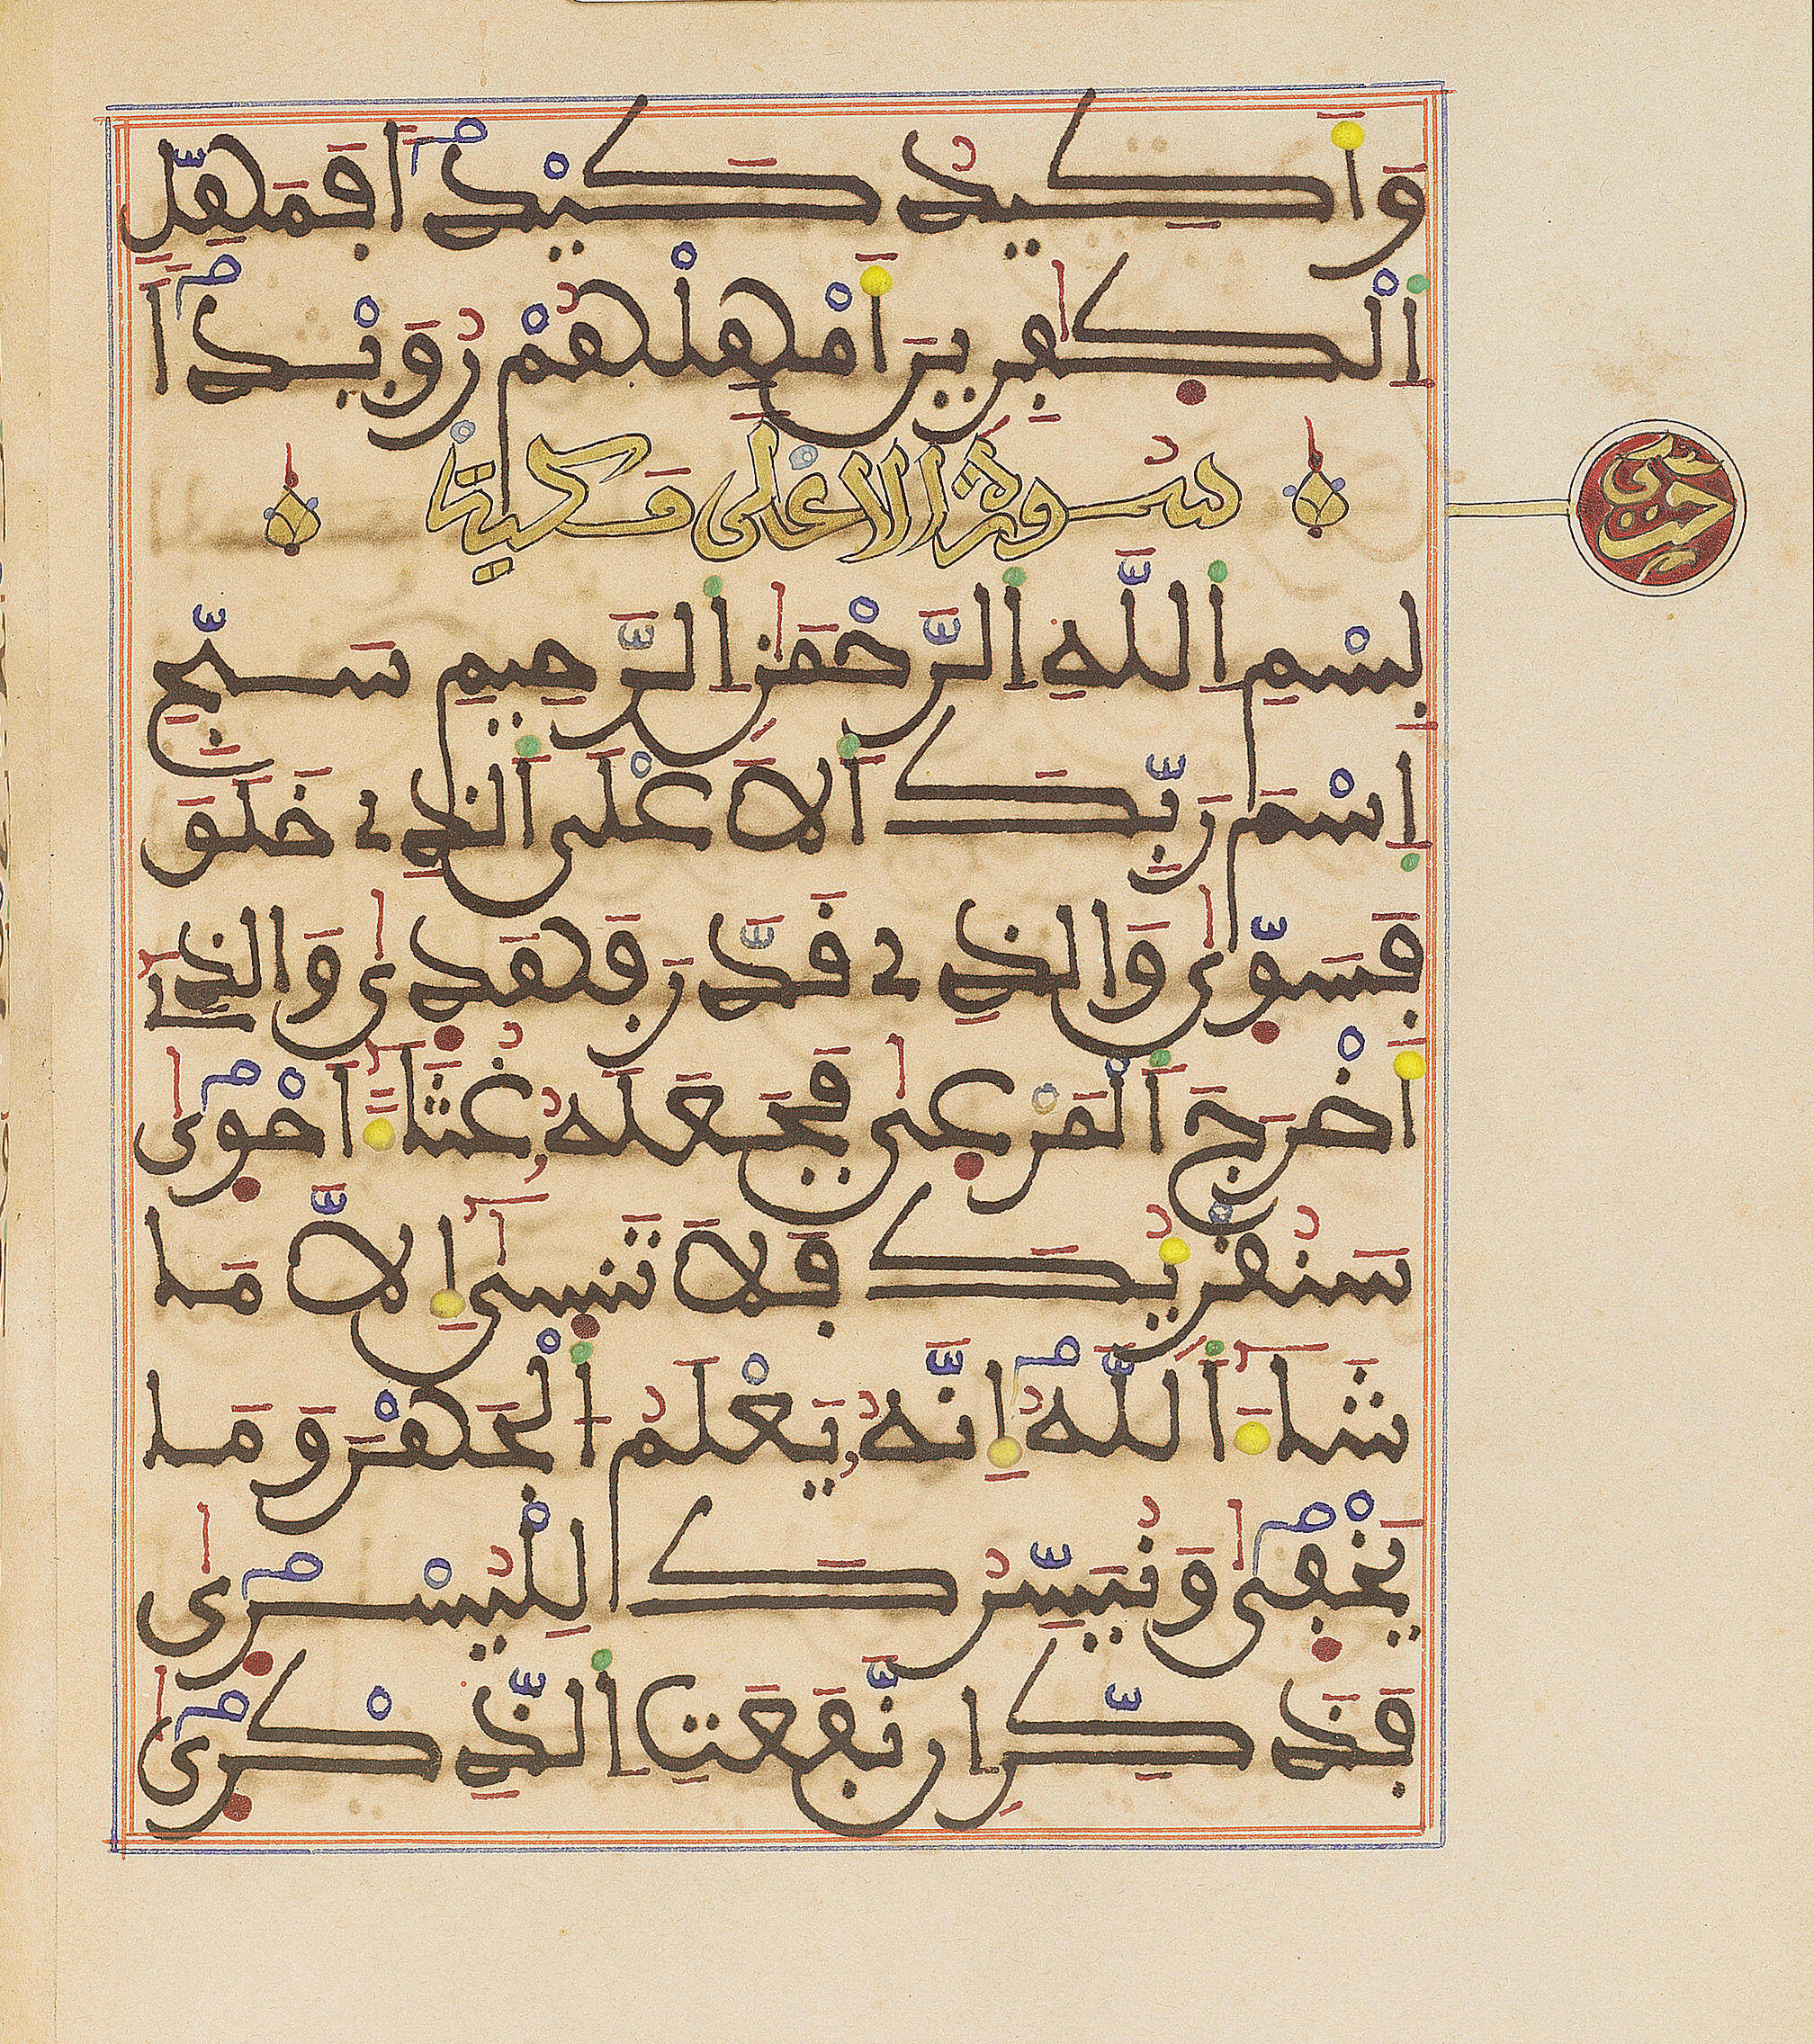 وَأَكِيدُ كَيْدًا فَمَهِّلِ
اِ۬لْكٰفِرِينَ أَمْهِلْهُمْ رُوَيْدًا
سُورَةُ الَاعْلَى مَكِّيَّةٌ
بِسْمِ اِ۬للَّهِ اِ۬لرَّحْمَٰنِ اِ۬لرَّحِيمِ سَبِّحِ
اِ۪سْمَ رَبِّكَ اَ۬لَاعْلَى اَ۬لذِے خَلَقَ
فَسَوّٰىٰ وَالذِے قَدَّرَ فَهَدٰىٰ وَالذِےٓ
أَخْرَجَ اَ۬لْمَرْعٰىٰ فَجَعَلَهُۥ غُثَآءً اَحْوٰىٰ
سَنُقْرِئُكَ فَلَا تَنسٰىٓ إِلَّا مَا
شَآءَ اَ۬للَّهُ إِنَّهُۥ يَعْلَمُ اُ۬لْجَهْرَ وَمَا
يَخْفٰىٰ وَنُيَسِّرُكَ لِلْيُسْرٰىٰ
فَذَكِّرِ اِن نَّفَعَتِ اِ۬لذِّكْرٰىٰ